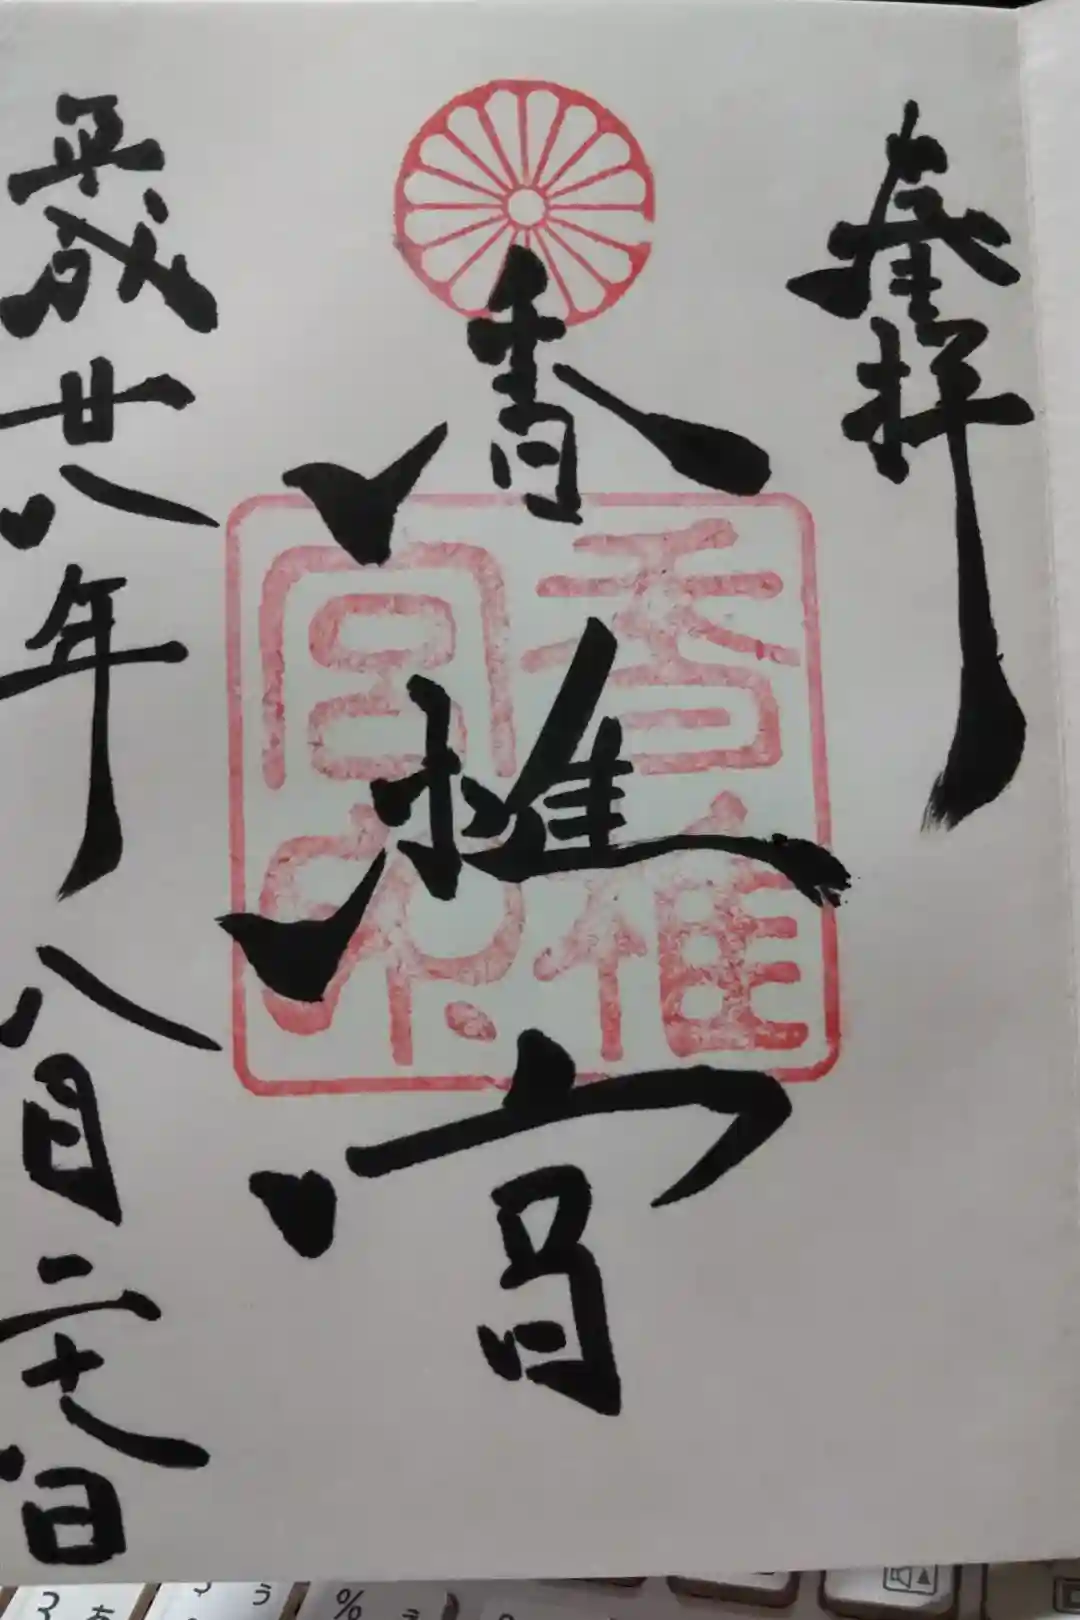 奉拝
香椎宮
香椎
宮印
平成廿八年八月二十八日
う
あ
%